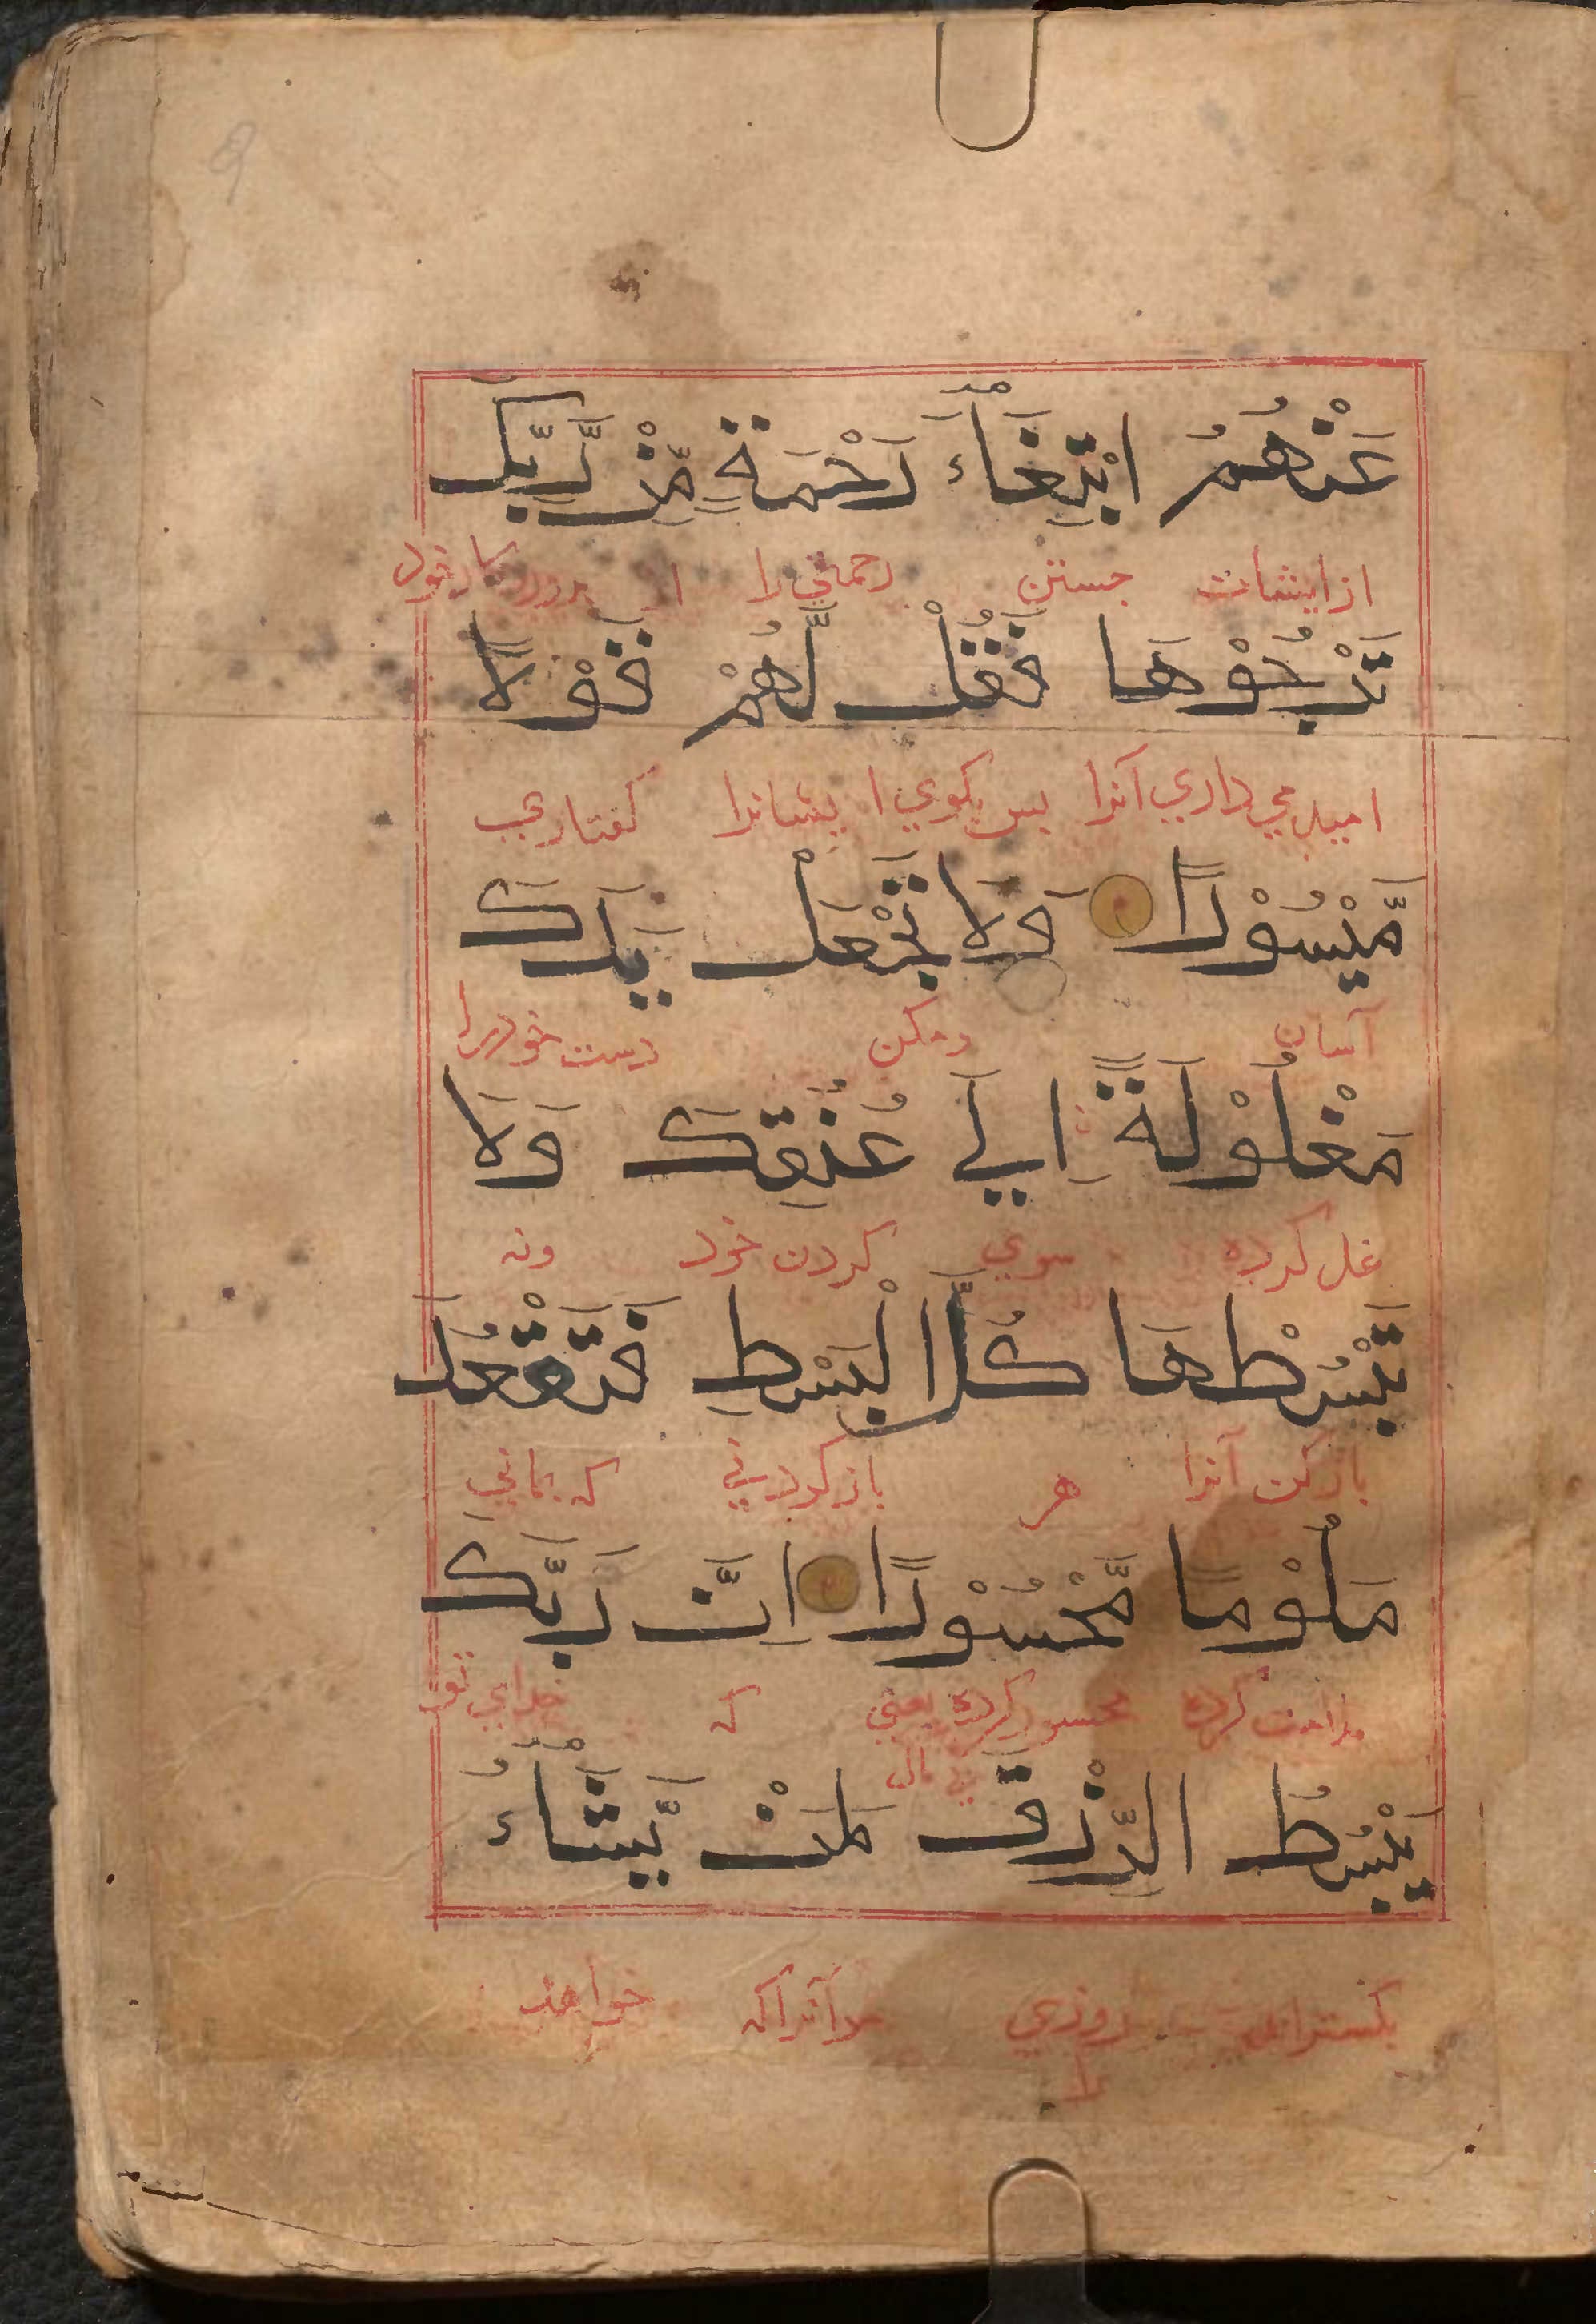 عَنْهُمُ ابْتِغَآءَ رَحْمَةٍ مِّنْ رَّبِّكَ
از ایشان جستن رحمتي را از پروردکار خود
تَرْجُوْهَا فَقُلْ لَّهُمْ قَوْلًا
امید مي داري آنرا پس بکوي ایشانرا کفتاري
مَّيْسُوْرًا وَلَا تَجْعَلْ يَدَكَ
آسان ومکن دست خود را
مَغْلُوْلَةً اِلٰي عُنُقِكَ وَلَا
غل کرده سوي کردن خود ونه
تَبْسُطْهَا كُلَّ الْبَسْطِ فَتَقْعُدَ
باز کن آنرا هر باز کردني که بماني
مَلُوْمًا مَّحْسُوْرًا اِنَّ رَبَّكَ
ملامت کرده محسور کرده یعني که خداي تو
بي مال
يَبْسُطُ الرِّزْقَ لِمَنْ يَّشَآءُ
بکستراند روزي مر آنرا که خواهد
را